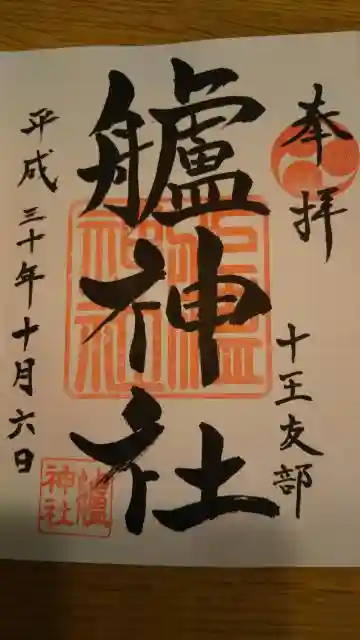 奉拝
十王友部
艫神社
平成三十年十月六日
神社